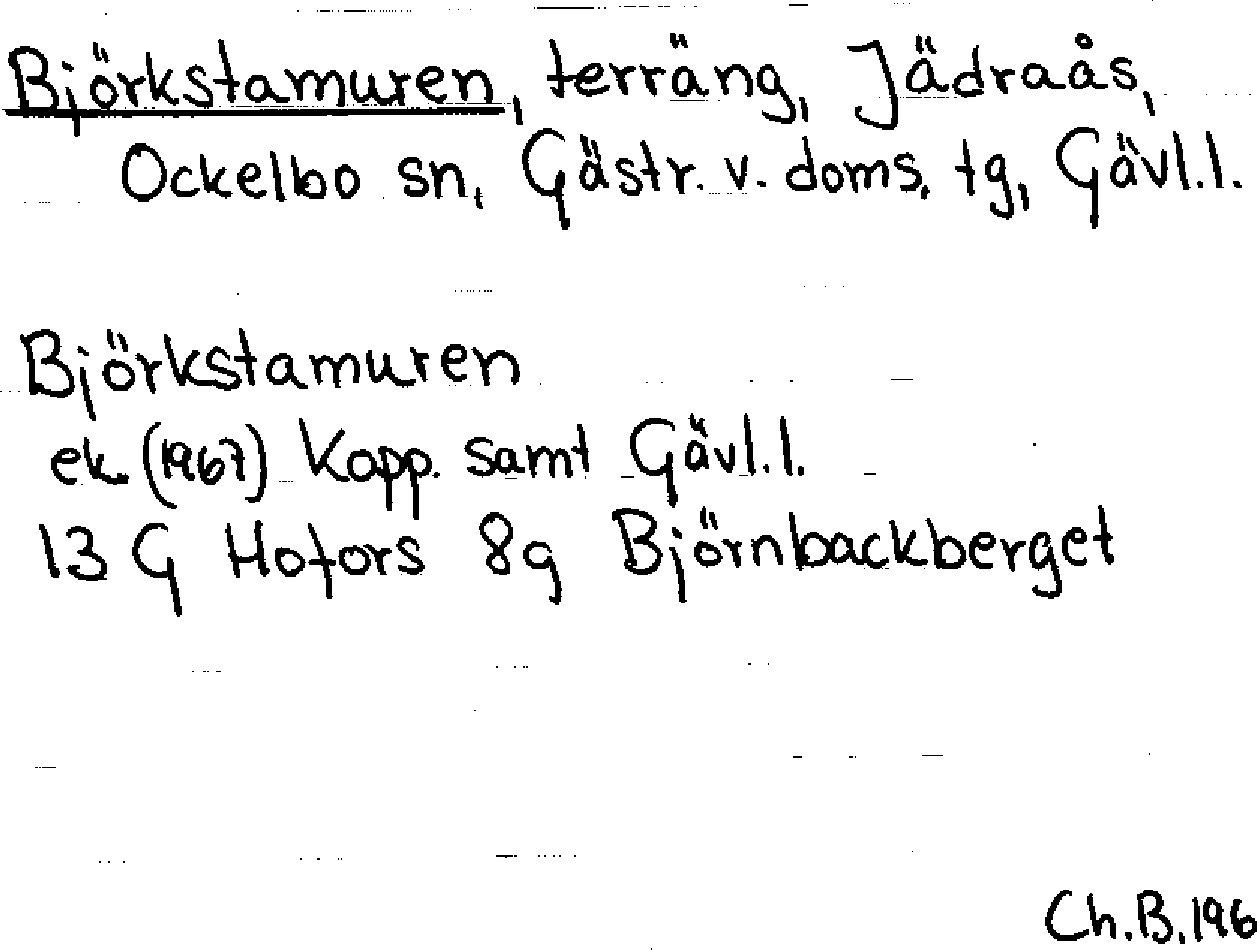 Björkstamuren, terräng, Jädraås,
Ockelbo sn, Gästr. v. doms. tg, Gävl.l.
Björkstamuren
ek. (1967) Kopp. samt Gävl.l.
13 G Hofors 8g Björnbackberget
Ch.B.196